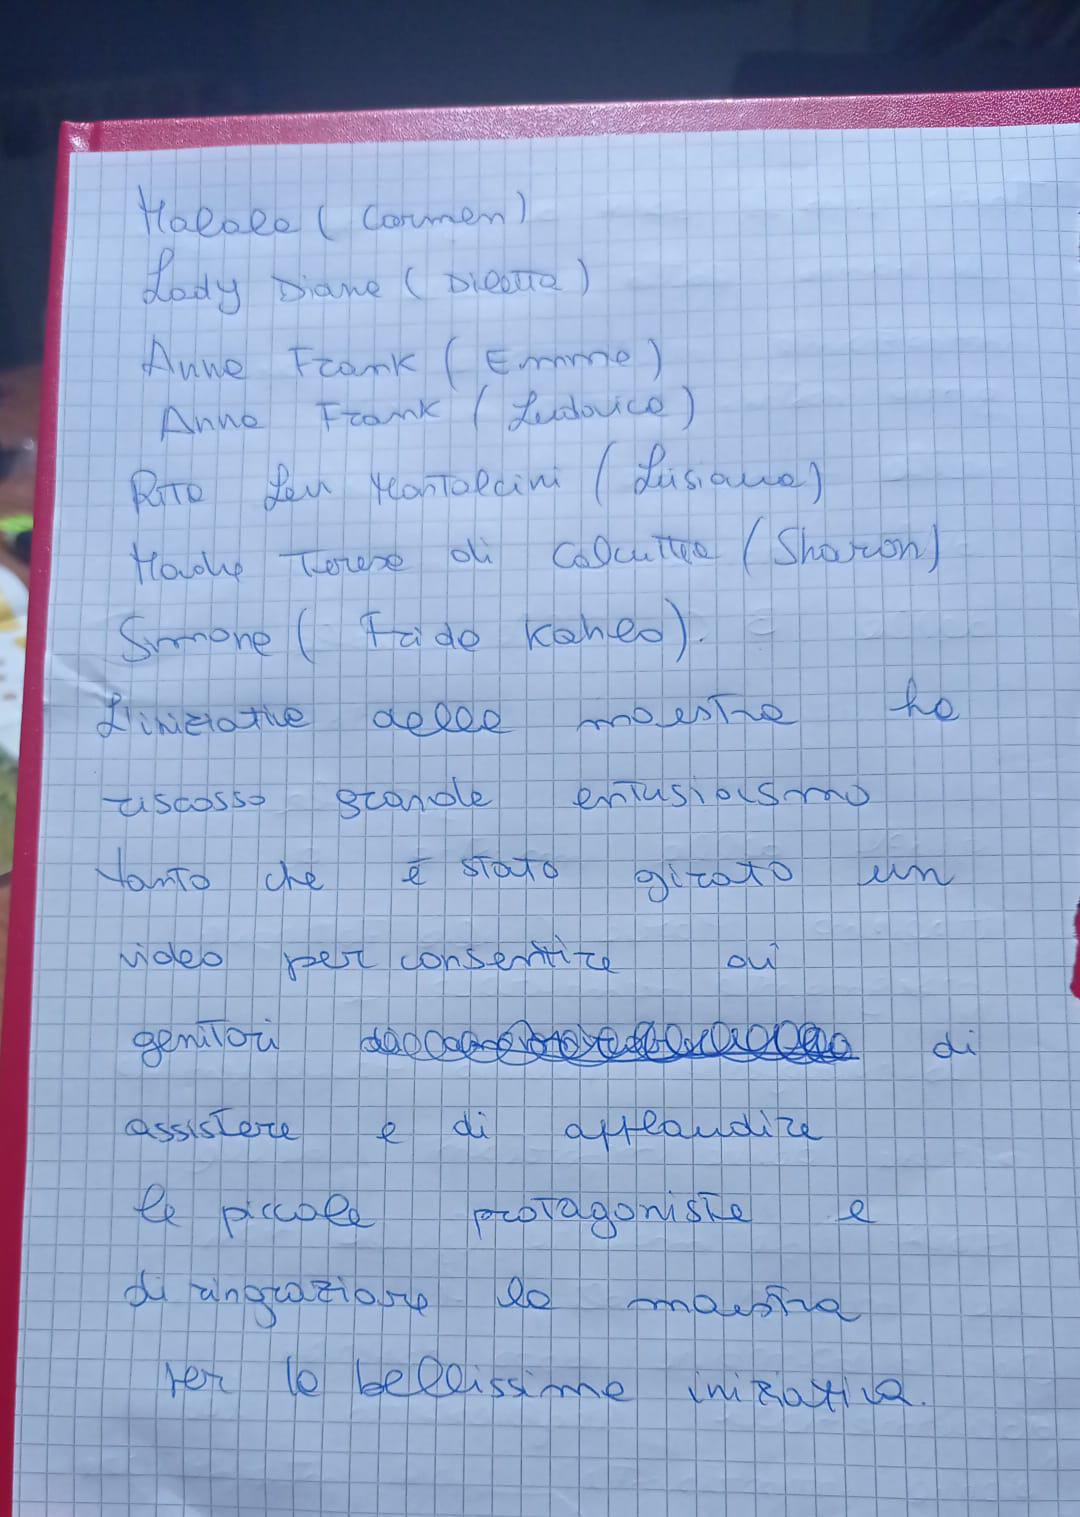 Malala (Carmen)
Lady Diana (Diletta)
Anna Frank (Emma)
Anna Frank (Ludovica)
Rita Levi Montalcini (Lusiana)
Madre Teresa di Calcutta (Sharon)
Simone (Frida Kahlo).
L'iniziativa della maestra ha
riscosso grande entusiasmo
tanto che è stato girato un
video per consentire ai
genitori di
assistere e di applaudire
le piccole protagoniste e
di ringraziare la maestra
per la bellissima iniziativa.